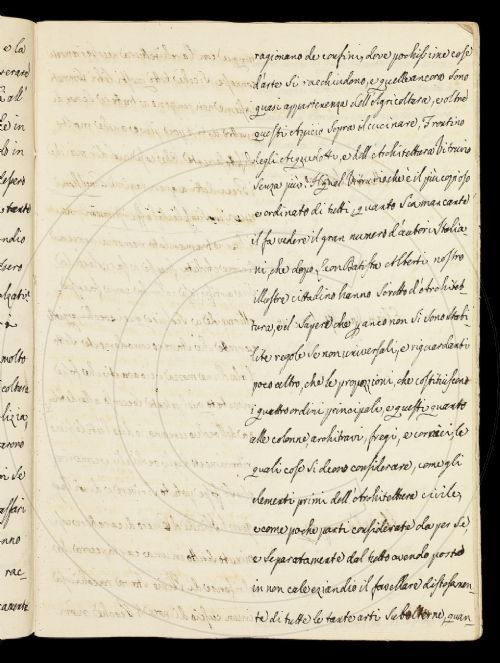 e la
verare
all'
e in
lo in
lessero
e tante
indio
molto
coltura
lizza,
ri se
affari
nno
rac-
ragionano de confini, dove pochissime cose
d'arte si racchiudono, e quelle ancora sono
quasi appartenenza dell'Agricoltura, e oltre
questi Apicio sopra il cucinare, Frontino
degli Acquidotti, e dell'Architettura Vitruvio
senza più. Il qual Vitruvio che è il più copioso
e ordinato di tutti, quanto sia mancante
il fa vedere il gran numero d'autori Italia-
ni che dopo Leon Batista Alberti nostro
illustre cittadino hanno scritto d'Architet
tura, e il sapere che per anco non si sono stabi
lite regole se non universali, e riguardanti
poco altro, che le proporzioni, che costituiscono
i quattro ordini principali, e questi quanto
alle colonne architravi, fregi, e cornici, le
quali cose si deono considerare, come gli
elementi primi dell'Architettura civile,
e come poche parti considerate da per se,
e separatamente dal tutto avendo posto
in non cale eziandio il favellare distesamen-
te di tutte le tante arti subalterne, quan-